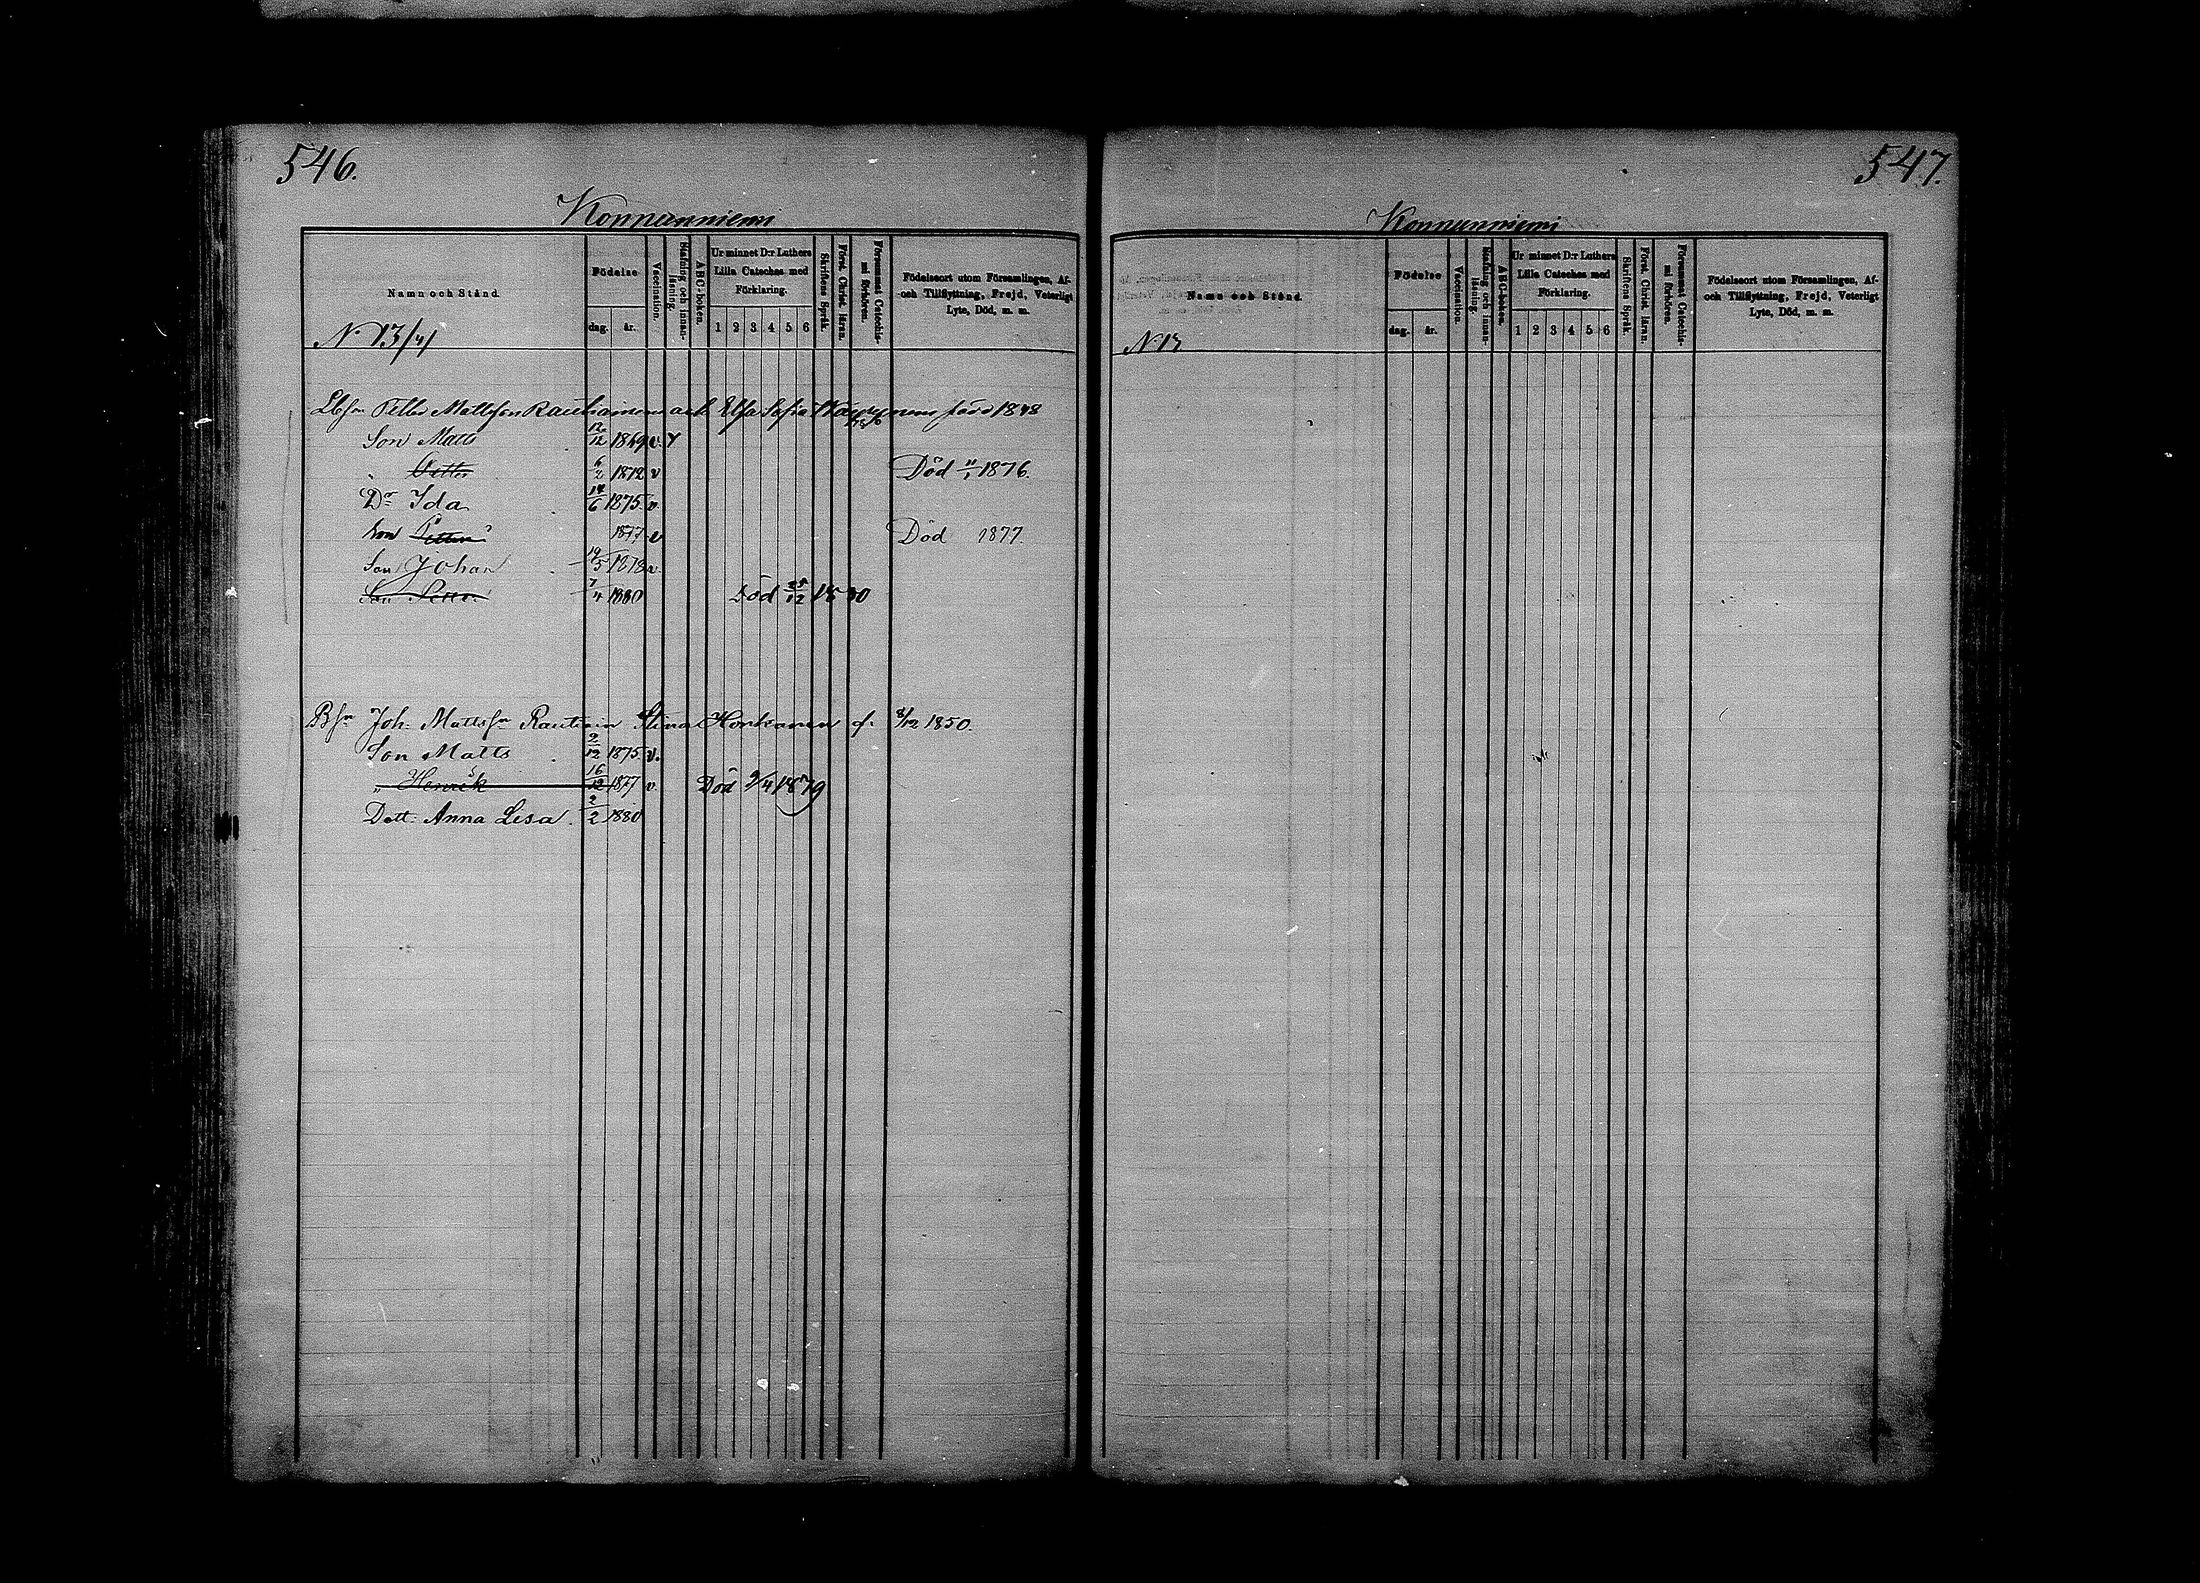 546.
Konnunniemi
Namn och Stånd.
Födelse
dag. år.
Vaccination.
Stafning och innan-läsning.
A B C-boken.
Ur minnet D:r Luthers
Lilla Cateches med
Förklaring.
1 2 3 4 5 6
Skriftens Språk.
Först. Christ. läran.
Försummat Catechis-mi förhören.
Födelseort utom Församlingen, Af-
och Tillflyttning, Frejd, Veterligt
Lyte, Död, m. m.
N 13/4/
Petter Mattsson Rautiainen Elsa Sofia född 1848
Son Matts 12/12 1869 v.
" Petter 6/2 1872 v Död 11/1 1876.
Dr Ida 14/6 1875 v.
Son Petter 1877 v Död 1877.
Son Johan 19/5 1878 v.
Son Petter 7/4 1880 Död 25/12 1880
Bfr Joh. Mattsfr Rautiain Stina Honkanen f. 8/12 1850.
Son Matts 9/12 1875 v.
" Henrik 16/12 1877 v. Död 9/4 1879
Dott. Anna Lisa. 2/2 1880
547.
Konnunniemi
Namn och Stånd.
Födelse
dag. år.
Vaccination.
Stafning och innan-läsning.
A B C-boken.
Ur minnet D:r Luthers
Lilla Cateches med
Förklaring.
1 2 3 4 5 6
Skriftens Språk.
Först. Christ. läran.
Försummat Catechis-mi förhören.
Födelseort utom Församlingen, Af-
och Tillflyttning, Frejd, Veterligt
Lyte, Död, m. m.
N 13